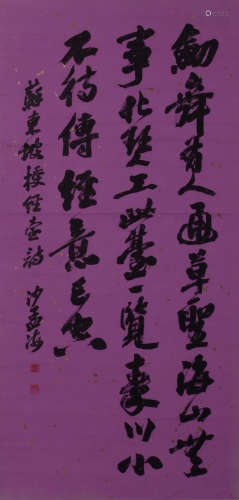 劍舞有人通草聖海山無
事化琴工此臺一覽秦川小
不待傳經意已空
蘇東坡授經臺詩 沙孟海